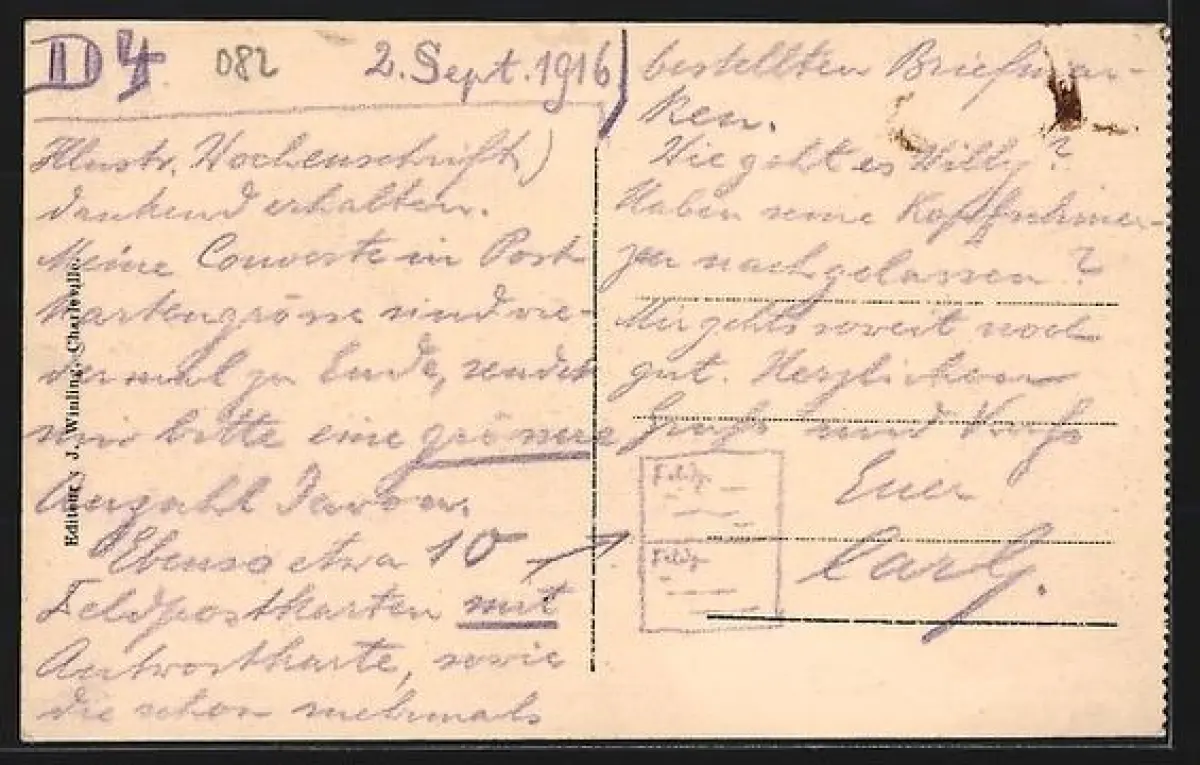 D 4
082
2. Sept. 1916
Illustr. Wochenschrift)
dankend erhalten.
Meine Couverte in Post-
kartengrösse sind wie-
der mal zu Ende, sendet
mir bitte eine grössere
Anzahl davon.
Ebenso etwa 10
Feldpostkarten mit
Antwortkarte, sowie
die schon mehrmals
bestellten Briefmar-
ken.
Wie geht es Willy?
Haben seine Kopfschmer-
zen nachgelassen?
Mir gehts soweit noch
gut. Herzlichen
Gruß und Kuß
Euer
Carl.
Feldp.
Feldp.
Editeur: J. Winling, Charleville.